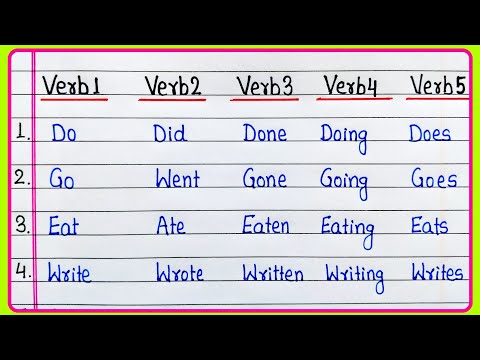 Verb1 Verb2 Verb3 Verb4 Verb5
1. Do Did Done Doing Does
2. Go Went Gone Going Goes
3. Eat Ate Eaten Eating Eats
4. Write Wrote Written Writing Writes